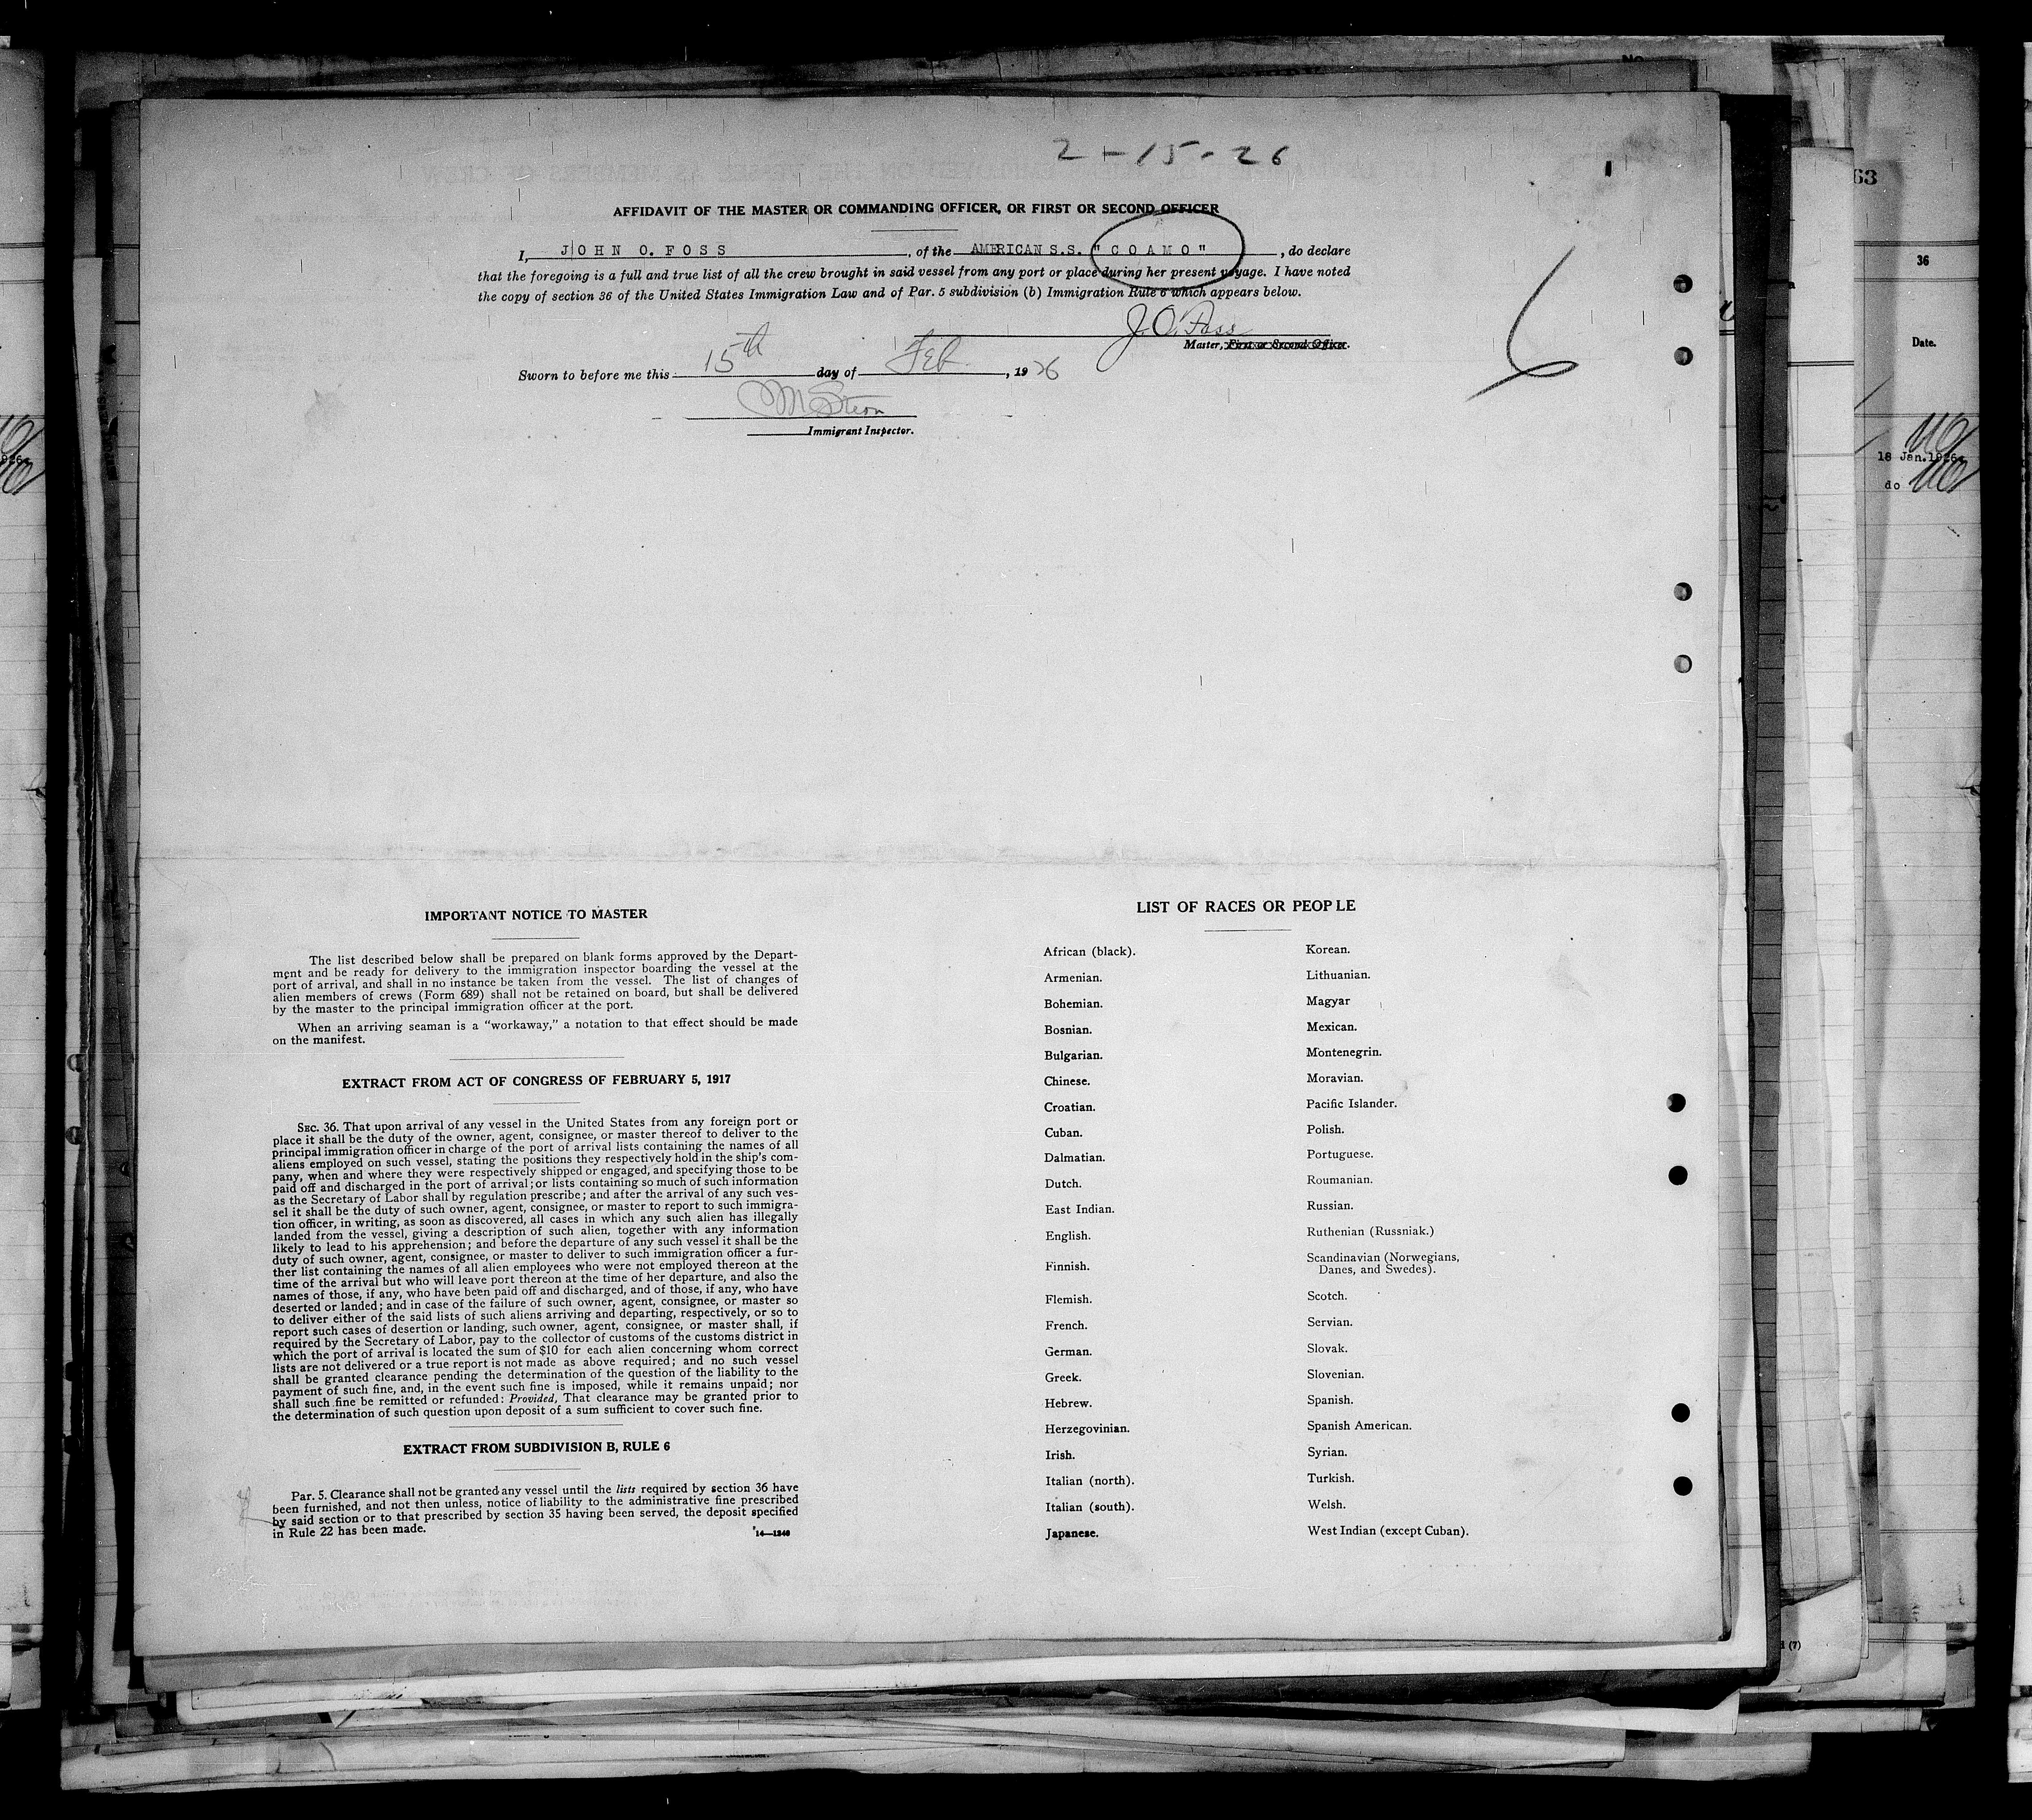 2-15-26
AFFIDAVIT OF THE MASTER OR COMMANDING OFFICER, OR FIRST OR SECOND OFFICER
I, JOHN O. FOSS, of the AMERICAN S.S. "COAMO", do declare
that the foregoing is a full and true list of all the crew brought in said vessel from any port or place during her present voyage. I have noted
the copy of section 36 of the United States Immigration Law and of Par. 5 subdivision (b) Immigration Rule 6 which appears below.
J.O. Foss
Master, First or Second Officer.
Sworn to before me this 15th day of Feb, 1926
Immigrant Inspector.
6
IMPORTANT NOTICE TO MASTER
The list described below shall be prepared on blank forms approved by the Depart-
ment and be ready for delivery to the immigration inspector boarding the vessel at the
port of arrival, and shall in no instance be taken from the vessel. The list of changes of
alien members of crews (Form 689) shall not be retained on board, but shall be delivered
by the master to the principal immigration officer at the port.
When an arriving seaman is a "workaway," a notation to that effect should be made
on the manifest.
EXTRACT FROM ACT OF CONGRESS OF FEBRUARY 5, 1917
SEC. 36. That upon arrival of any vessel in the United States from any foreign port or
place it shall be the duty of the owner, agent, consignee, or master thereof to deliver to the
principal immigration officer in charge of the port of arrival lists containing the names of all
aliens employed on such vessel, stating the positions they respectively hold in the ship's com-
pany, when and where they were respectively shipped or engaged, and specifying those to be
paid off and discharged in the port of arrival; or lists containing so much of such information
as the Secretary of Labor shall by regulation prescribe; and after the arrival of any such ves-
sel it shall be the duty of such owner, agent, consignee, or master to report to such immigra-
tion officer, in writing, as soon as discovered, all cases in which any such alien has illegally
landed from the vessel, giving a description of such alien, together with any information
likely to lead to his apprehension; and before the departure of any such vessel it shall be the
duty of such owner, agent, consignee, or master to deliver to such immigration officer a fur-
ther list containing the names of all alien employees who were not employed thereon at the
time of the arrival but who will leave port thereon at the time of her departure, and also the
names of those, if any, who have been paid off and discharged, and of those, if any, who have
deserted or landed; and in case of the failure of such owner, agent, consignee, or master so
to deliver either of the said lists of such aliens arriving and departing, respectively, or so to
report such cases of desertion or landing, such owner, agent, consignee, or master shall, if
required by the Secretary of Labor, pay to the collector of customs of the customs district in
which the port of arrival is located the sum of $10 for each alien concerning whom correct
lists are not delivered or a true report is not made as above required; and no such vessel
shall be granted clearance pending the determination of the question of the liability to the
payment of such fine, and, in the event such fine is imposed, while it remains unpaid; nor
shall such fine be remitted or refunded: Provided, That clearance may be granted prior to
the determination of such question upon deposit of a sum sufficient to cover such fine.
EXTRACT FROM SUBDIVISION B, RULE 6
Par. 5. Clearance shall not be granted any vessel until the lists required by section 36 have
been furnished, and not then unless, notice of liability to the administrative fine prescribed
by said section or to that prescribed by section 35 having been served, the deposit specified
in Rule 22 has been made.
14—1240
LIST OF RACES OR PEOPLE
African (black).
Armenian.
Bohemian.
Bosnian.
Bulgarian.
Chinese.
Croatian.
Cuban.
Dalmatian.
Dutch.
East Indian.
English.
Finnish.
Flemish.
French.
German.
Greek.
Hebrew.
Herzegovinian.
Irish.
Italian (north).
Italian (south).
Japanese.
Korean.
Lithuanian.
Magyar
Mexican.
Montenegrin.
Moravian.
Pacific Islander.
Polish.
Portuguese.
Roumanian.
Russian.
Ruthenian (Russniak.)
Scandinavian (Norwegians,
Danes, and Swedes).
Scotch.
Servian.
Slovak.
Slovenian.
Spanish.
Spanish American.
Syrian.
Turkish.
Welsh.
West Indian (except Cuban).
63
36
Date.
18 Jan. 1926
do
(7)